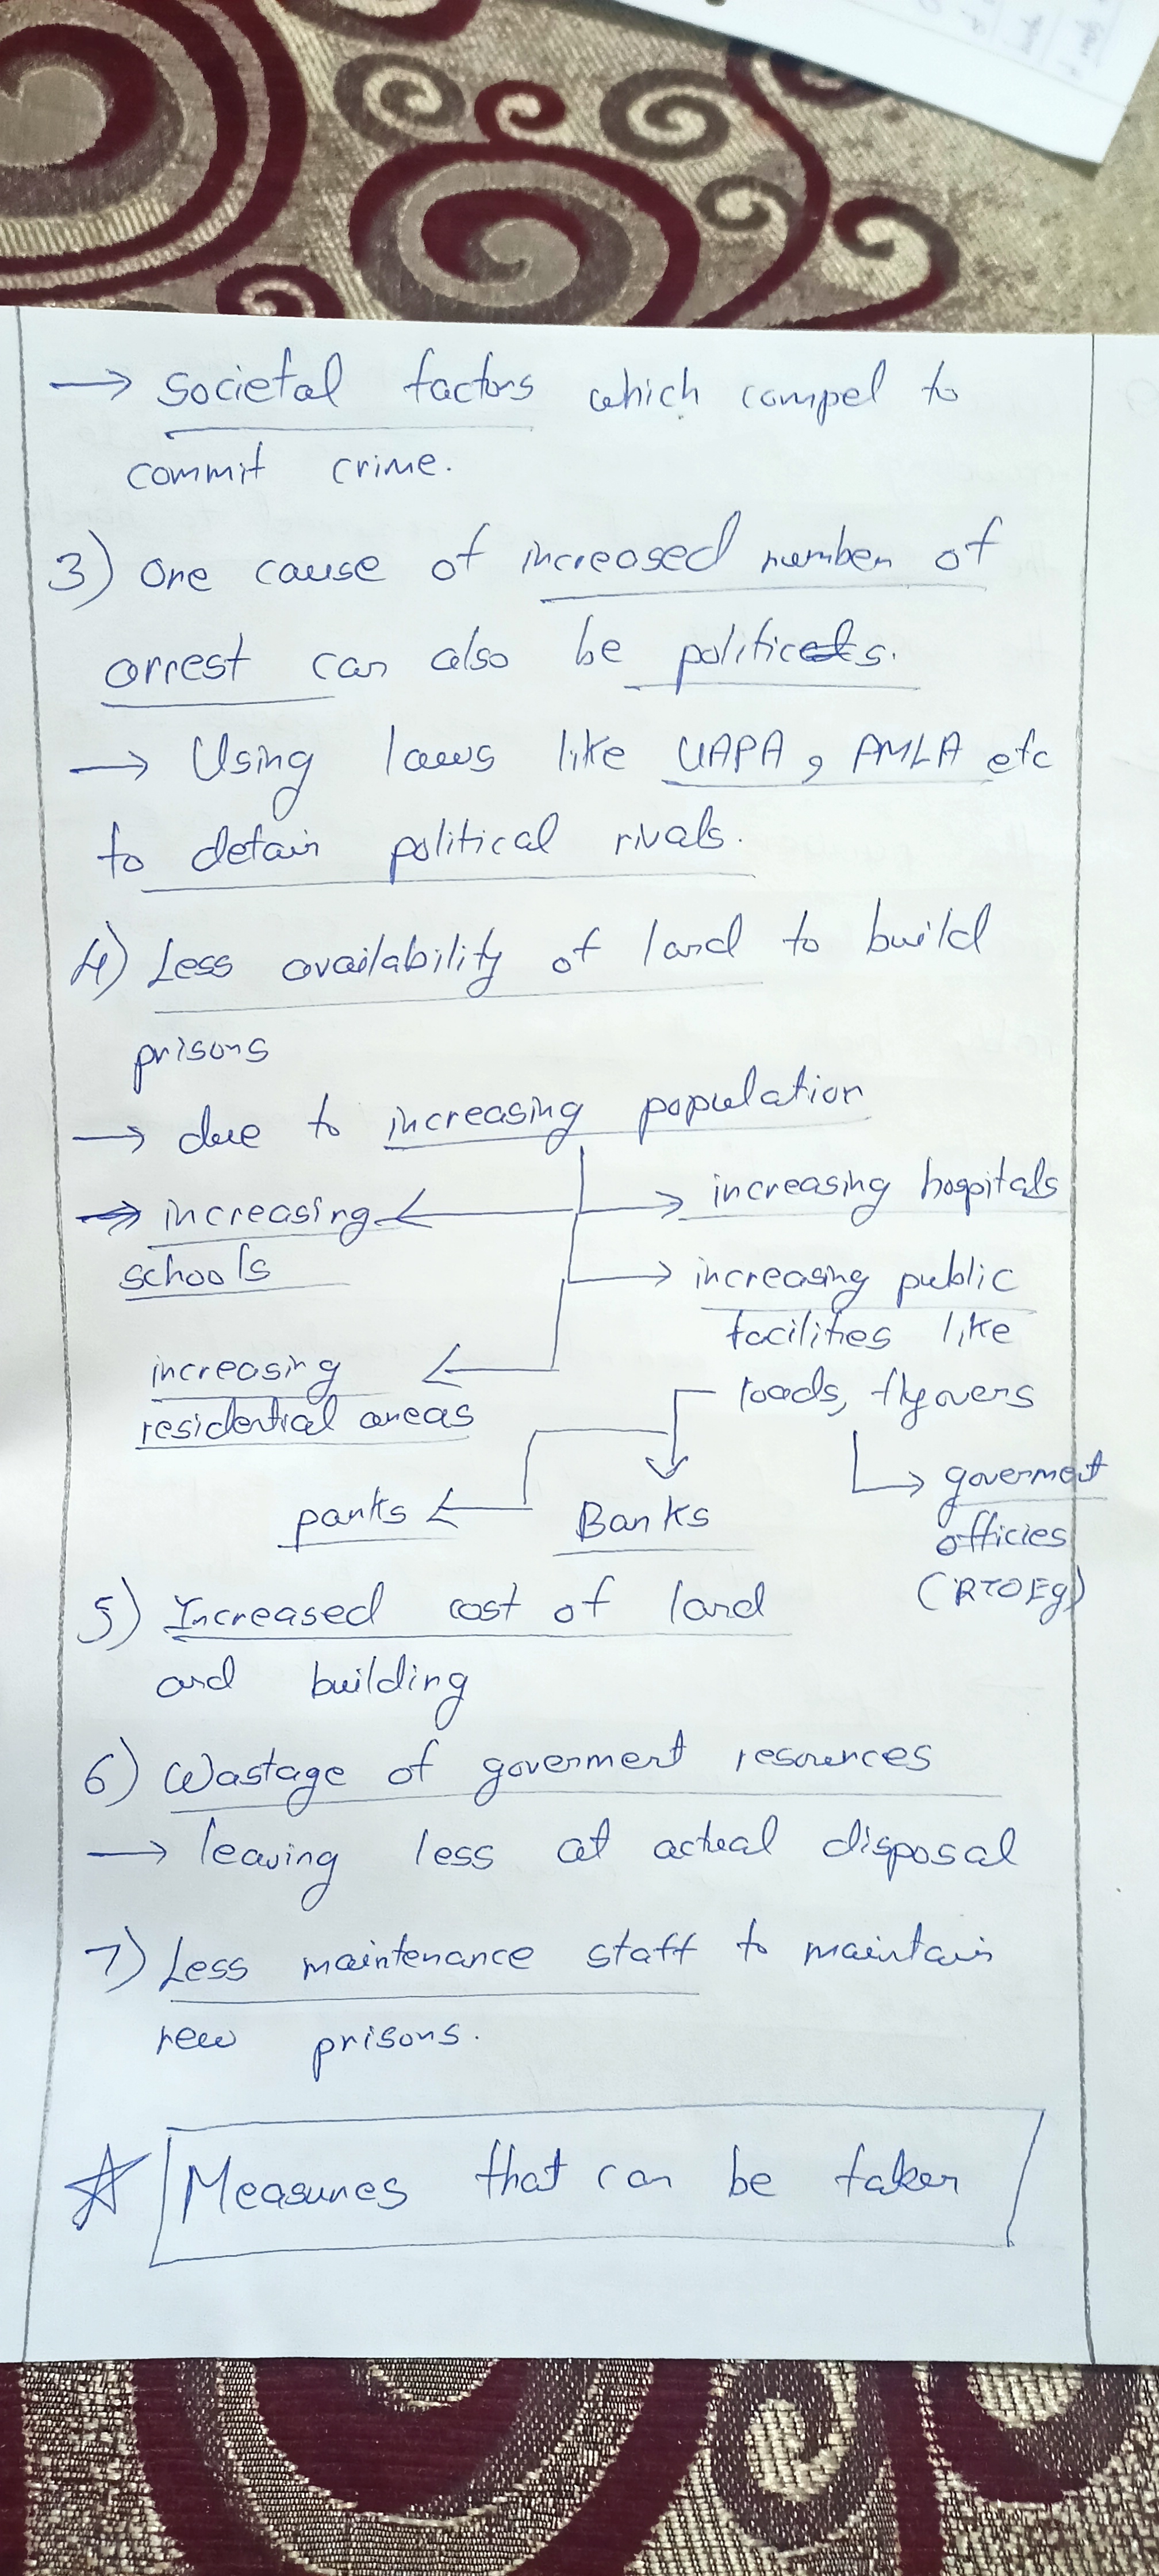 → societal factors which compel to
commit crime.
3) One cause of increased number of
arrest can also be politics.
→ Using laws like UAPA, PMLA etc
to detain political rivals.
4) Less availability of land to build
prisons
→ due to increasing population
→ increasing
schools
increasing hospitals
increasing public
facilities like
roads, flyovers
increasing
residential areas
parks
Banks
goverment
officies
(RTO Eg)
5) Increased cost of land
and building
6) Wastage of goverment resources
→ leaving less at actual disposal
7) Less maintenance staff to maintain
new prisons.
☆ Measures that can be taken